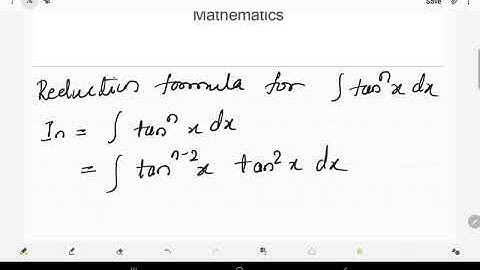 Save
Mathematics
Reduction formula for ∫ tanⁿx dx
Iₙ = ∫ tanⁿ x dx
= ∫ tanⁿ⁻² x tan² x dx